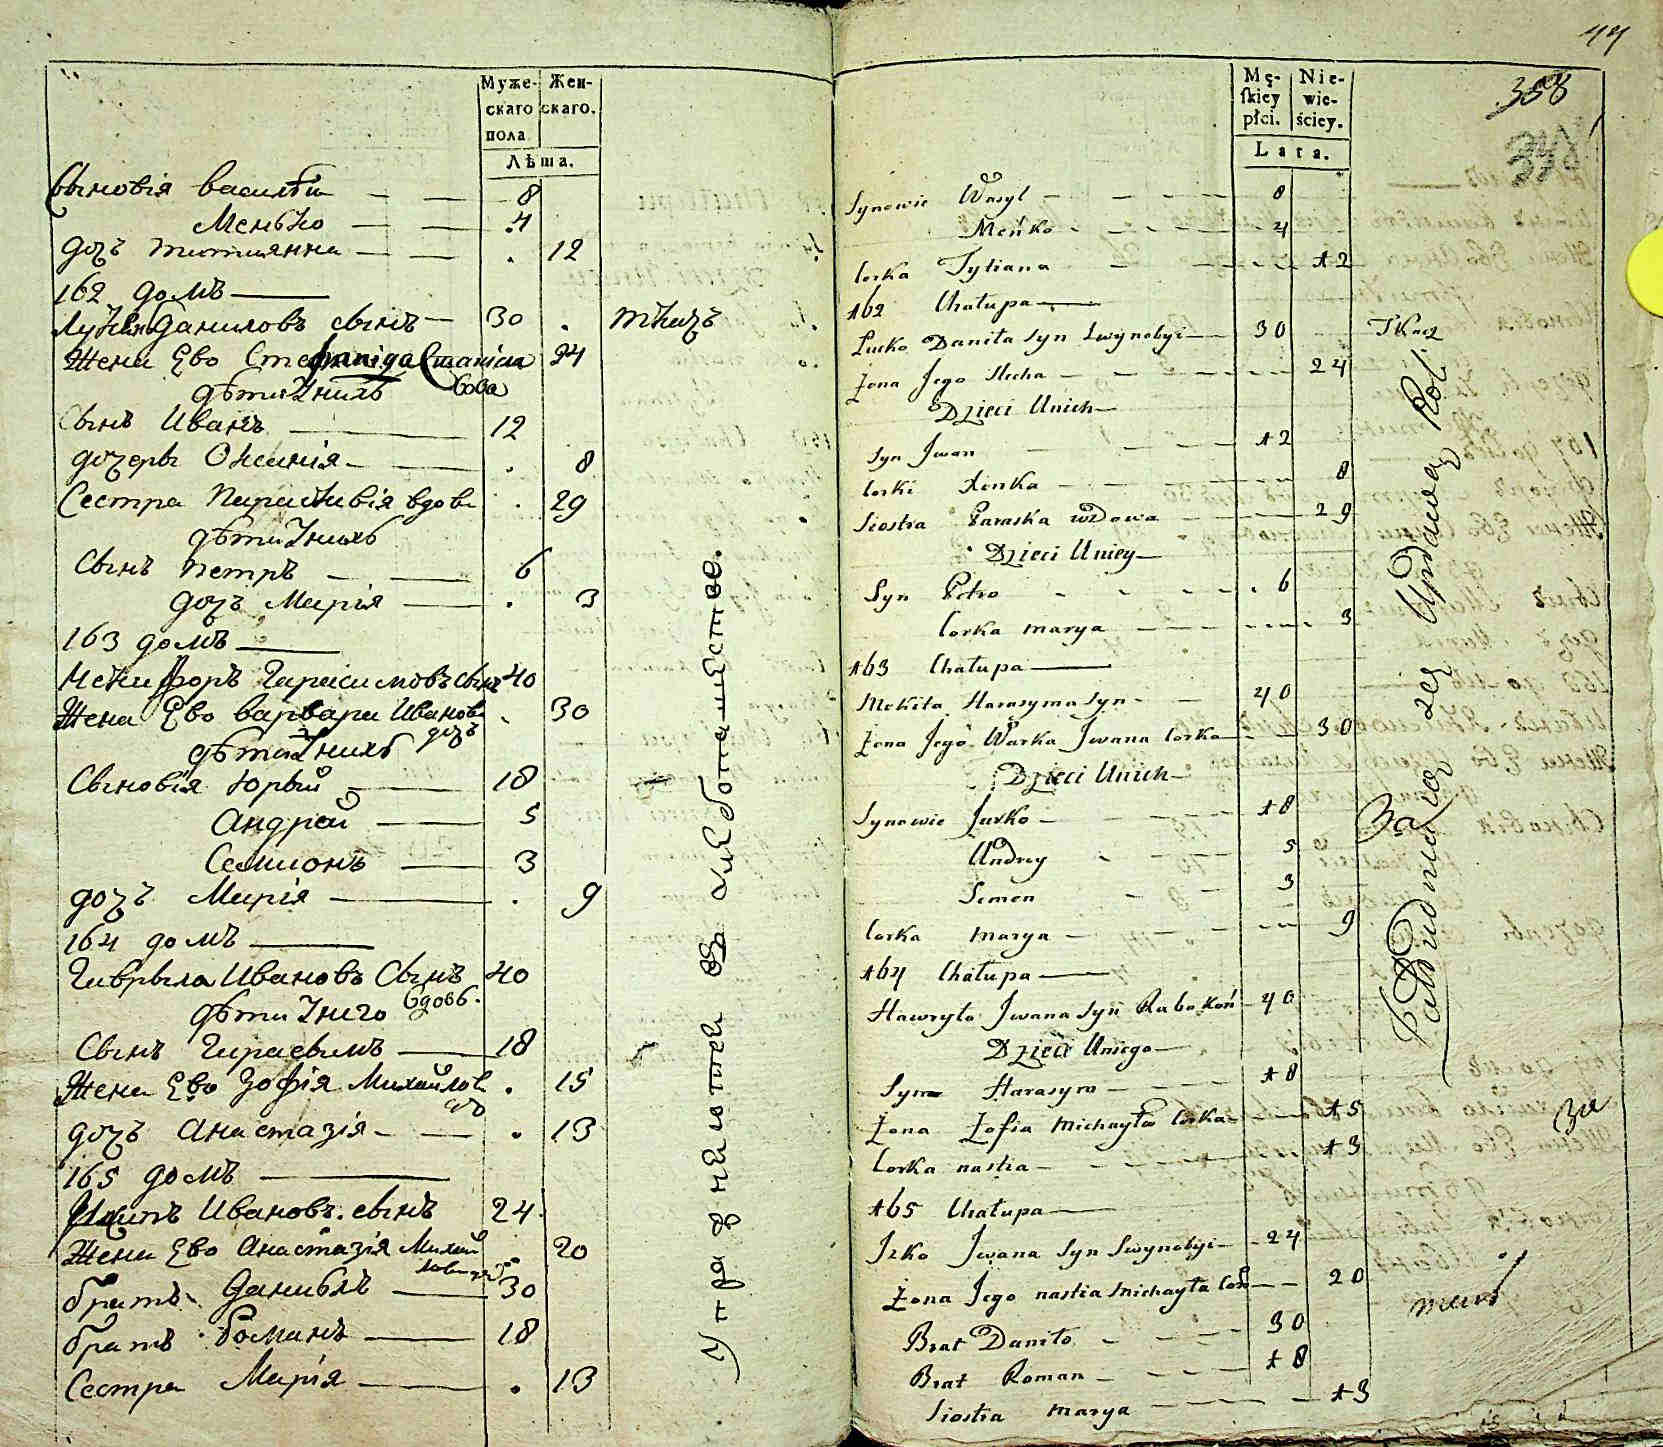 Муже- Жен-
скаго скаго.
пола
Лѣта.
Сыновія Василѣй 8
Менько 4
дочъ Татиянна 12
162 домъ
Луцкъ Даниловъ сынъ 30 ткачъ
Жена Ево 24
дѣти У нихъ
Сынъ Иванъ 12
дочерьі Оксинія 8
Сестра Параскивія вдова 29
дѣти У нихъ
Сынъ Петръ 6
дочъ Марія 3
163 домъ
Некифоръ Гарасимовъ сынъ 40
Жена Ево Варвара Иванова 30
дочъ
дѣти У нихъ
Сыновія Юрьій 18
Андрей 5
Семионъ 3
дочъ Марія 9
164 домъ
Гаврыла Ивановъ Сынъ 40
вдовъ
дѣти У него
Сынъ Гарасымъ 18
Жена Ево Зофія Михайлов 15
дочъ Анастазія 13
165 домъ
Ивановъ сынъ 24
Жена Ево Анастазія Михай 20
братъ Данибліъ 30
братъ Романъ 18
Сестра Марія 13
Упражняются въ хлѣбопашестве.
44
358
348
Mę- Nie-
skiey wie-
płci. ściey.
Lata.
Synowie Wasyl 8
Meńko 4
Corka Tytiana 12
162 Chałupa
Lucko Daniła Syn Swynobyi 30 Tkacz
Żona Jego Stecha 24
Dzieci Unich
Syn Jwan 12
Corki Xenka 8
Siostra Paraska wdowa 29
Dzieci Uniey
Syn Petro 6
Corka Marya 3
163 Chałupa
Mekita Harasyma Syn 40
Żona Jego Warka Jwana Corka 30
Dzieci Unich
Synowie Jurko 18
Andrey 5
Semen 3
Corka Marya 9
164 Chałupa
Hawryło Jwana Syn Rabokoń 40
Dzieci Uniego
Syn Harasym 18
Żona Zofia Michayła Corka 15
Corka Nastia 13
165 Chałupa
Jcko Jwana Syn Swynobyi 24
Żona Jego Nastia Michayła Cor 20
Brat Daniło 30
Brat Roman 18
Siostra Marya 13
Zatrudniaią się Uprawą Roli